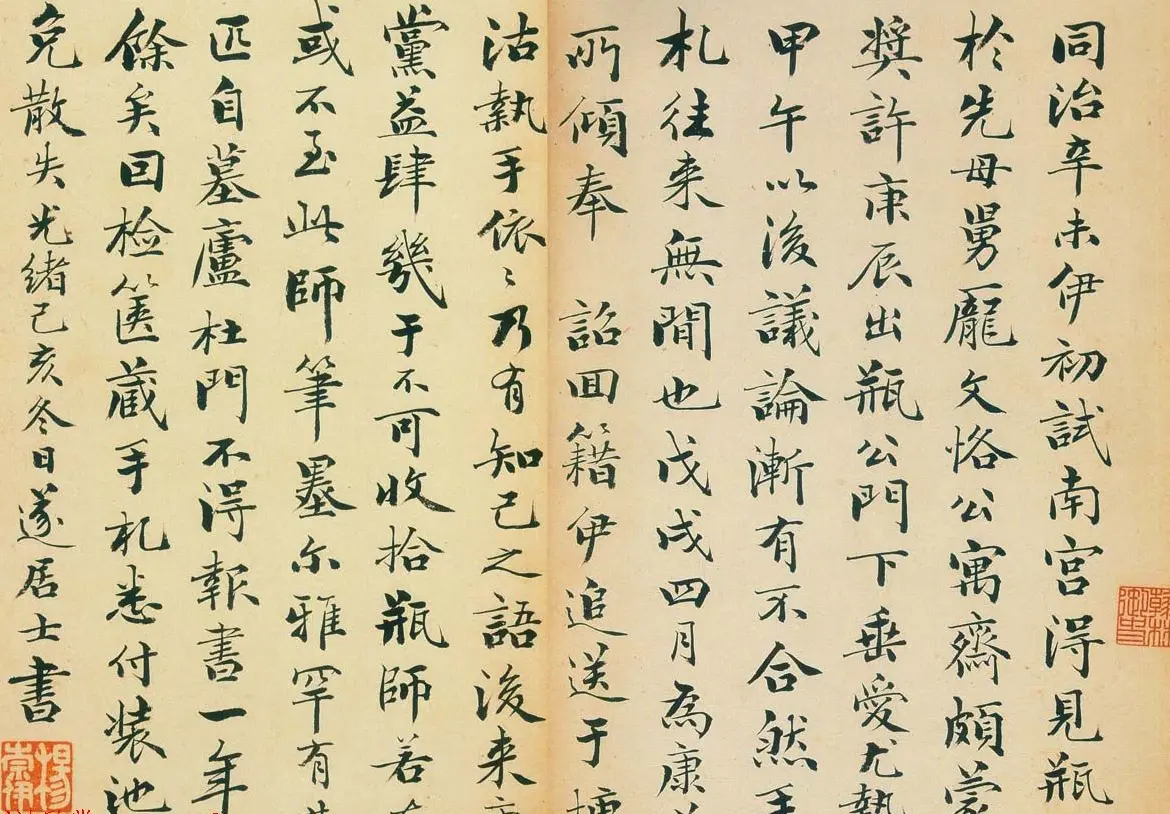 同治辛未伊初試南宮得見瓶
於先母舅龐文恪公寓齋頗蒙
獎許庚辰出瓶公門下垂愛尤
甲午以後議論漸有不合然手
札往来無間也戊戌四月為康
所傾奉 詔回籍伊追送于
沽執手依〻乃有知己之語後来
黨益肆幾于不可收拾瓶師若
或不至此師筆墨尔雅罕有
匹自墓廬杜門不得報書一年
餘矣回檢篋藏手札悉付装池
免散失光緒己亥冬日遂居士書